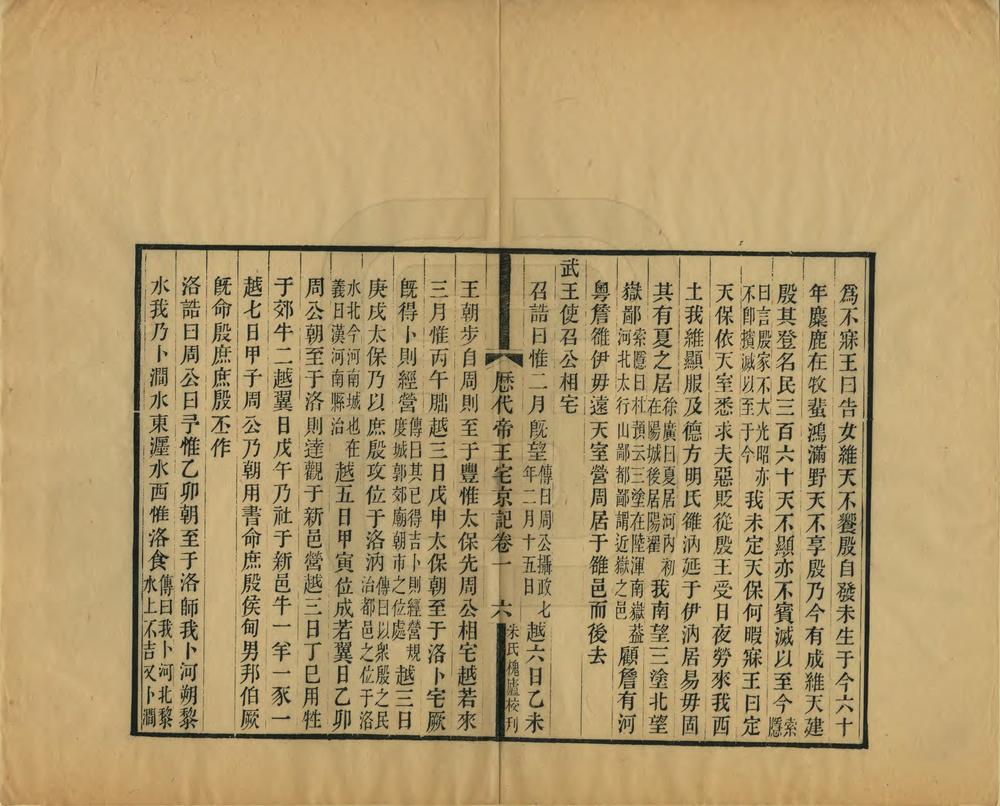 爲不寐王曰告女維天不饗殷自發未生于今六十
年麋鹿在牧蜚鴻滿野天不享殷乃今有成維天建
殷其登名民三百六十天不顯亦不賓滅以至今索隱
曰言殷家不大光昭亦不卽擯滅以至于今我未定天保何暇寐王曰定
天保依天室悉求夫惡貶從殷王受日夜勞來我西
土我維顯服及德方明氏雒汭延于伊汭居易毋固
其有夏之居徐廣曰夏居河內初在陽城後居陽翟我南望三塗北望
獄鄙索隱曰杜預云三塗在陸渾南嶽蓋河北太行山鄙都鄙謂近嶽之邑顧詹有河
粤詹雒伊毋遠天室營周居于雒邑而後去
武王使召公相宅
召誥曰惟二月旣望傳曰周公攝政七年二月十五日越六日乙未
歷代帝王宅京記卷一 六 朱氏槐廬校刊
王朝步自周則至于豐惟太保先周公相宅越若來
三月惟丙午朏越三日戊申太保朝至于洛卜宅厥
旣得卜則經營傳曰其已得吉卜則經營規度城郭郊廟朝市之位處越三日
庚戌太保乃以庶殷攻位于洛汭傳曰以衆殷之民治都邑之位于洛
水北今河南城也在義曰漢河南縣治越五日甲寅位成若翼日乙卯
周公朝至于洛則達觀于新邑營越三日丁巳用牲
于郊牛二越翼日戊午乃社于新邑牛一羊一豕一
越七日甲子周公乃朝用書命庶殷侯甸男邦伯厥
旣命殷庶庶殷丕作
洛誥曰周公曰予惟乙卯朝至于洛師我卜河朔黎
水我乃卜澗水東瀍水西惟洛食傳曰我卜河北黎水上不吉又卜澗